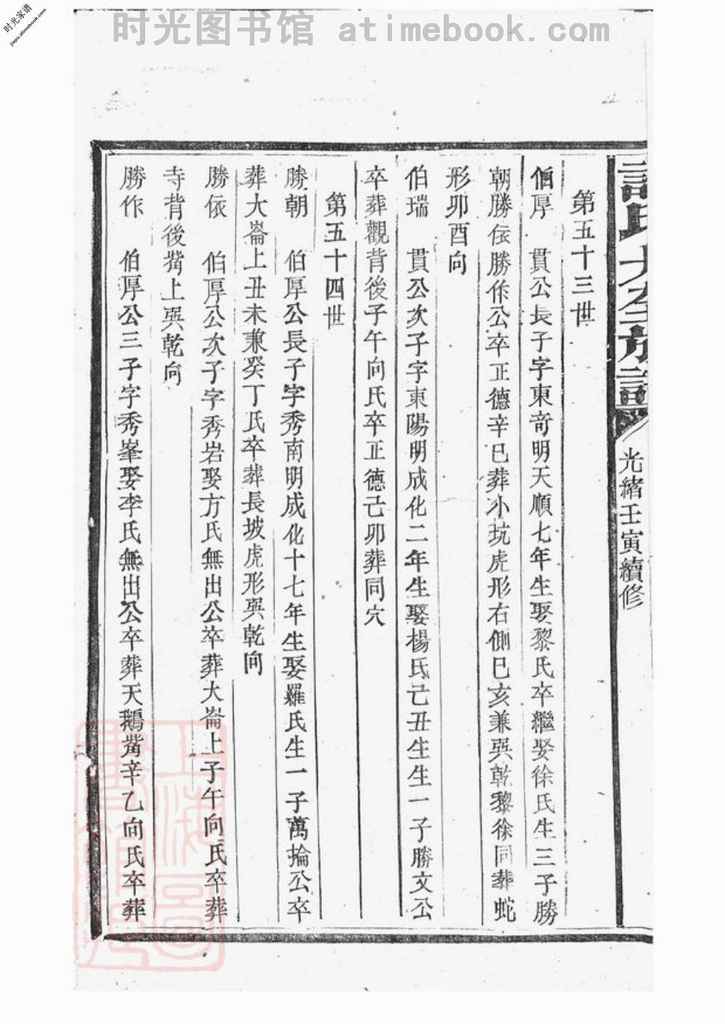 时光图书馆 atimebook.com
时光家谱
光緒壬寅續修
第五十三世
伯厚 貫公長子字東竒明天順七年生娶黎氏卒繼娶徐氏生三子勝
朝勝依勝作公卒正德辛巳葬小坑虎形右側巳亥兼巽乾黎徐同葬蛇
形卯酉向
伯瑞 貫公次子字東陽明成化二年生娶楊氏己丑生生一子勝文公
卒葬觀背後子午向氏卒正德己卯葬同穴
第五十四世
勝朝 伯厚公長子字秀南明成化十七年生娶羅氏生一子萬掄公卒
葬大崙上丑未兼癸丁氏卒葬長坡虎形巽乾向
勝依 伯厚公次子字秀岩娶方氏無出公卒葬大崙上子午向氏卒葬
寺背後觜上巽乾向
勝作 伯厚公三子字秀峯娶李氏無出公卒葬天鵝觜辛乙向氏卒葬